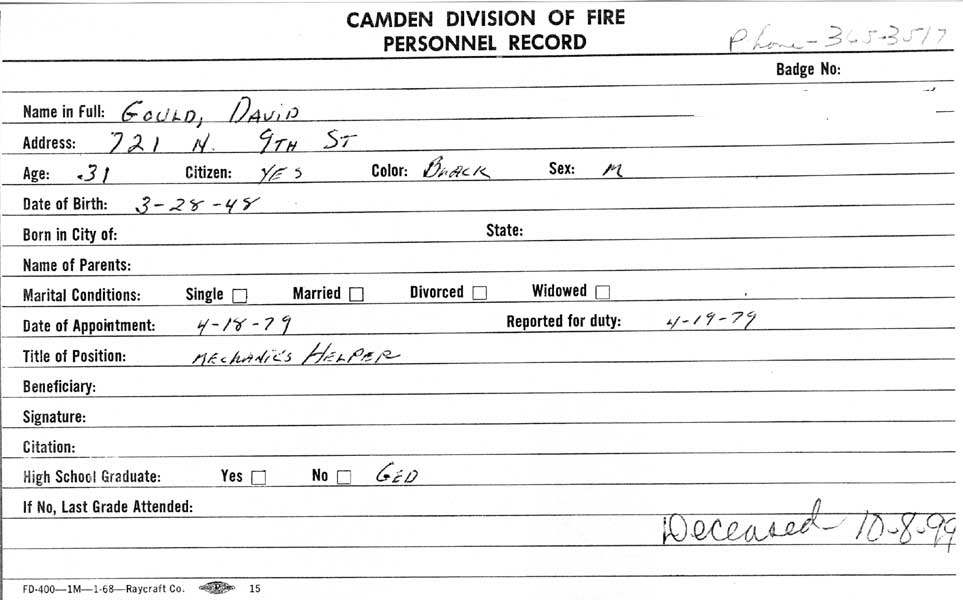 CAMDEN DIVISION OF FIRE
PERSONNEL RECORD
Phone-365-3517
Badge No:
Name in Full: GOULD, DAVID
Address: 721 N. 9TH ST
Age: 31 Citizen: YES Color: BLACK Sex: M
Date of Birth: 3-28-48
Born in City of: State:
Name of Parents:
Marital Conditions: Single □ Married □ Divorced □ Widowed □
Date of Appointment: 4-18-79 Reported for duty: 4-19-79
Title of Position: MECHANIC'S HELPER
Beneficiary:
Signature:
Citation:
High School Graduate: Yes □ No □ GED
If No, Last Grade Attended:
Deceased- 10-8-99
FD-400—1M—1-68—Raycraft Co. 15